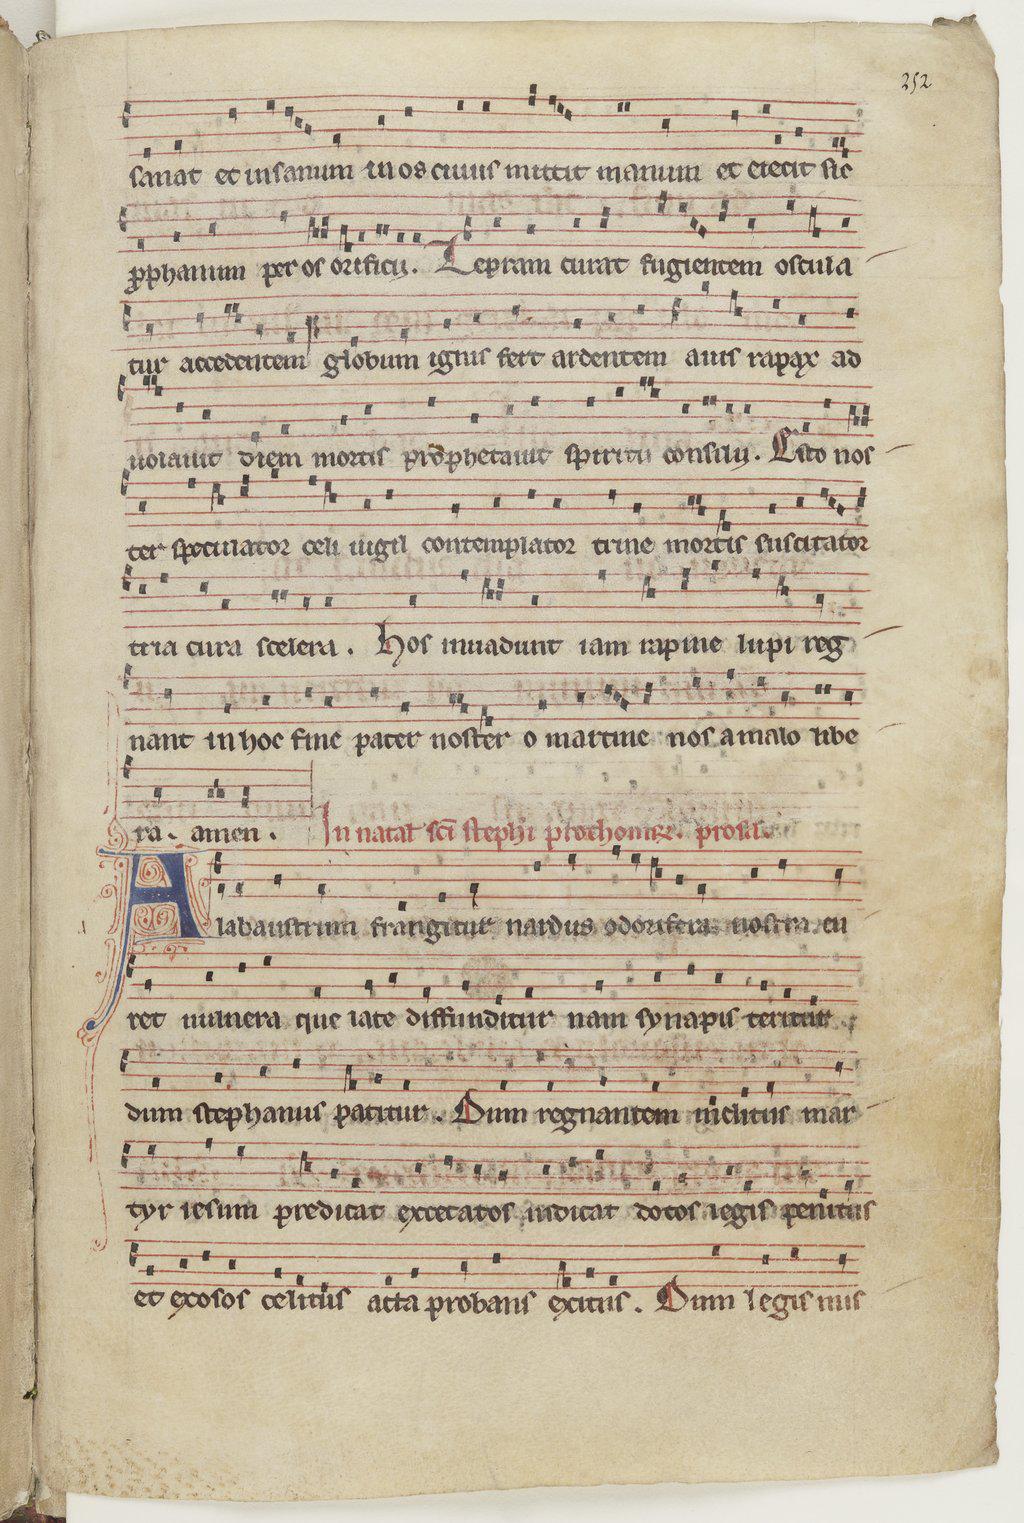 252
sanat et insanum in os cuius mittit manum et eiecit sic
prophanum per os orificij. Lepram curat fugientem oscula
tur accedentem globum ignis fert ardentem auis rapax ad
uolauit diem mortis prophetauit spiritu consilij. Esto nos
ter speculator celi uigil contemplator trine mortis suscitator
tria cura scelera. Hos inuadunt iam rapine lupi reg
nant in hoc fine pater noster o martine nos a malo libe
ra. amen. In natal sci stephi prothomr. prosa.
Alabaustrum frangitur nardus odorifera nostra cu
ret uulnera que late diffunditur nam synapis teritur
dum stephanus patitur. Dum regnantem inclitus mar
tyr iesum predicat excecatos iudicat dotos legis penitus
et exosos celitus acta probans exitus. Dum legis nus